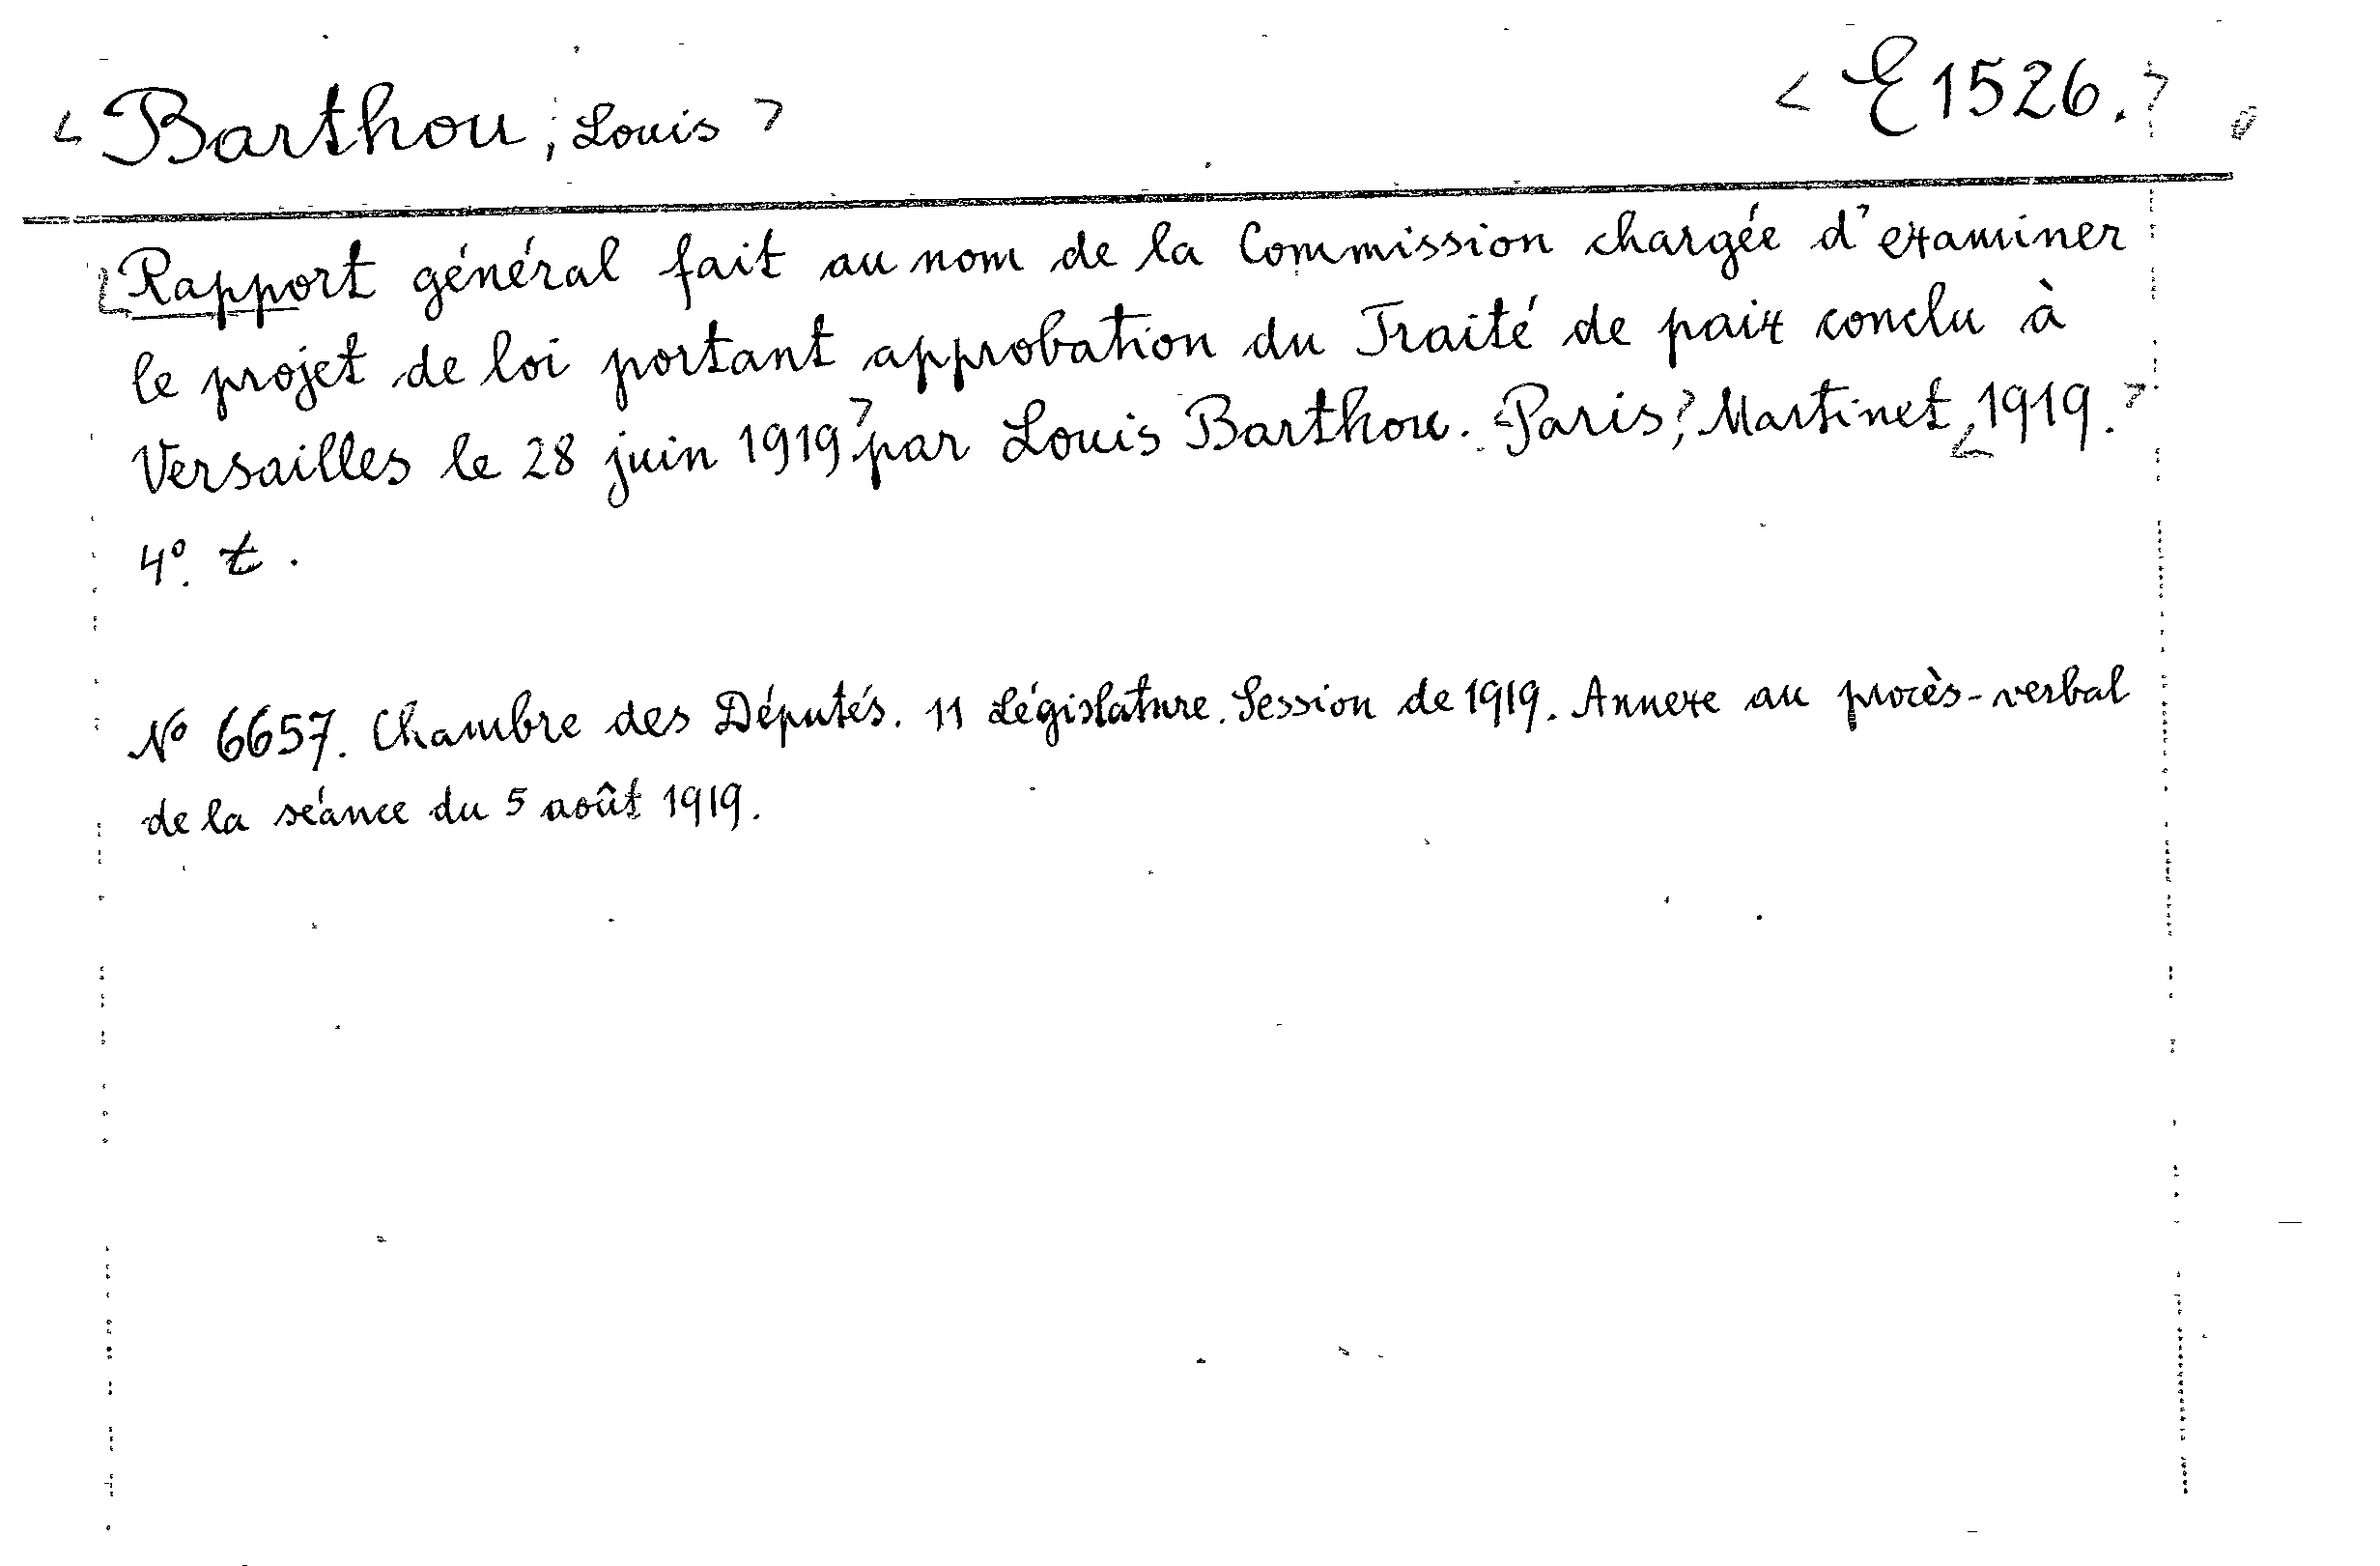 < Barthou, Louis > < E 1526. >
< Rapport général fait au nom de la Commission chargée d'examiner
le projet de loi portant approbation du Traité de paix conclu à
Versailles le 28 juin 1919 > par Louis Barthou. < Paris, > Martinet < 1919. >
4°. t.
N° 6657. Chambre des Députés. 11 Législature. Session de 1919. Annexe au procès-verbal
de la séance du 5 août 1919.